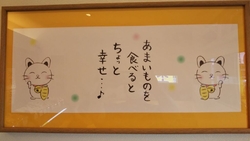 あまいものを
食べると
ちょっと
幸せ…♪